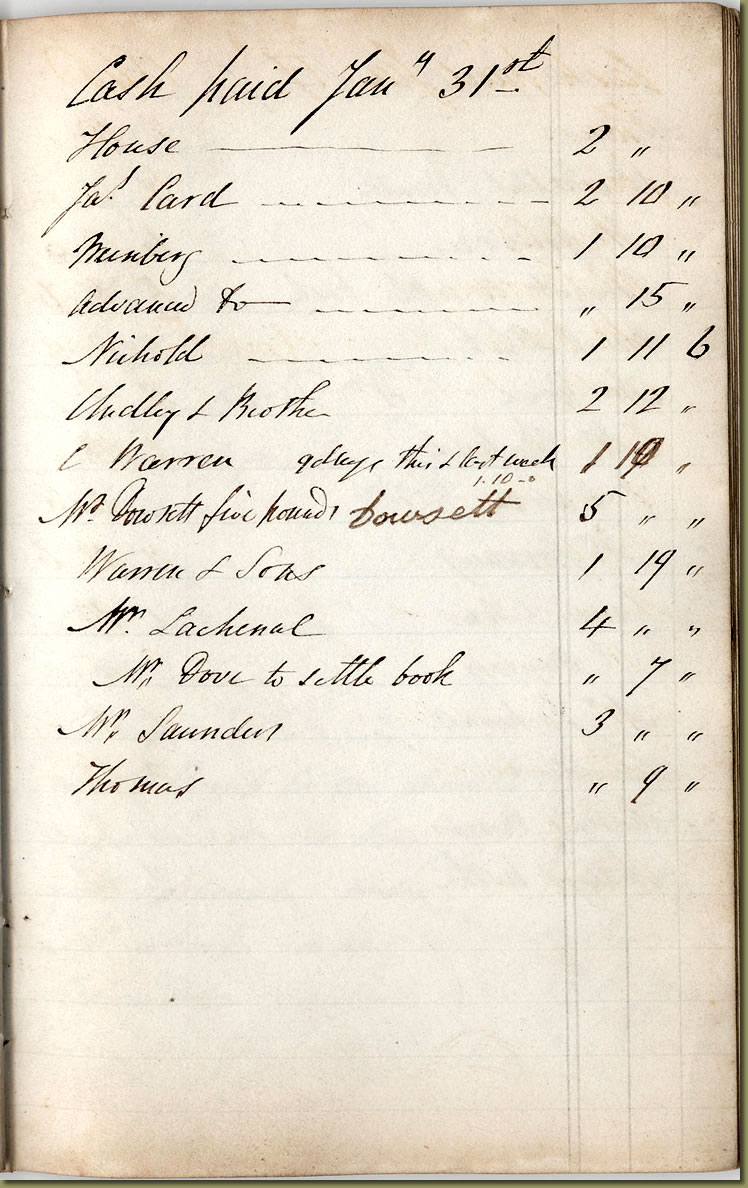 Cash paid Jany 31st
House 2 "
Jas Card 2 10 "
Weinberg 1 10 "
advanced to " 15 "
Nichold 1 11 6
Chidley & Brother 2 12 "
C Warren 9 days this & last week 1 "
1-10-0
Mr Dowsett five pounds Dowsett 5 " "
Warren & Sons 1 19 "
Mr. Lachenal 4 " "
Mr. Dove to settle book " 7 "
Mr. Saunders 3 " "
Thomas " 9 "